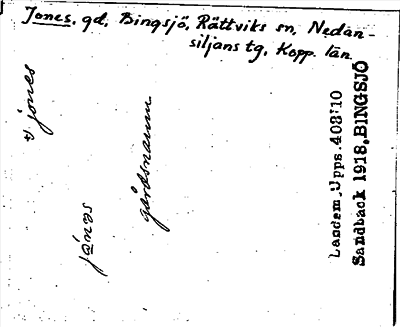 Jones, gd, Bingsjö, Rättviks sn, Nedan-
siljans tg, Kopp. län.
jones
jónas
gårdsnamn
Landsm. Upps. 403:10
Sandback 1918, BINGSJÖ